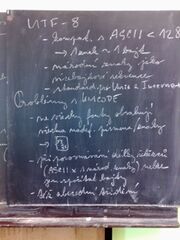 UTF-8
- kompat. s ASCII < 128
→ 1 znak = 1 bajt
- národní znaky jako
vícebajtové sekvence
- standard pro Unix a Internet
Problémy s UNICODE
- ne všechny fonty obsahují
všechna písmena/znaky
→
- při porovnávání délky řetězců
(ASCII × národ. znaky) nelze
jen spočítat bajty
- těž. abecední třídění